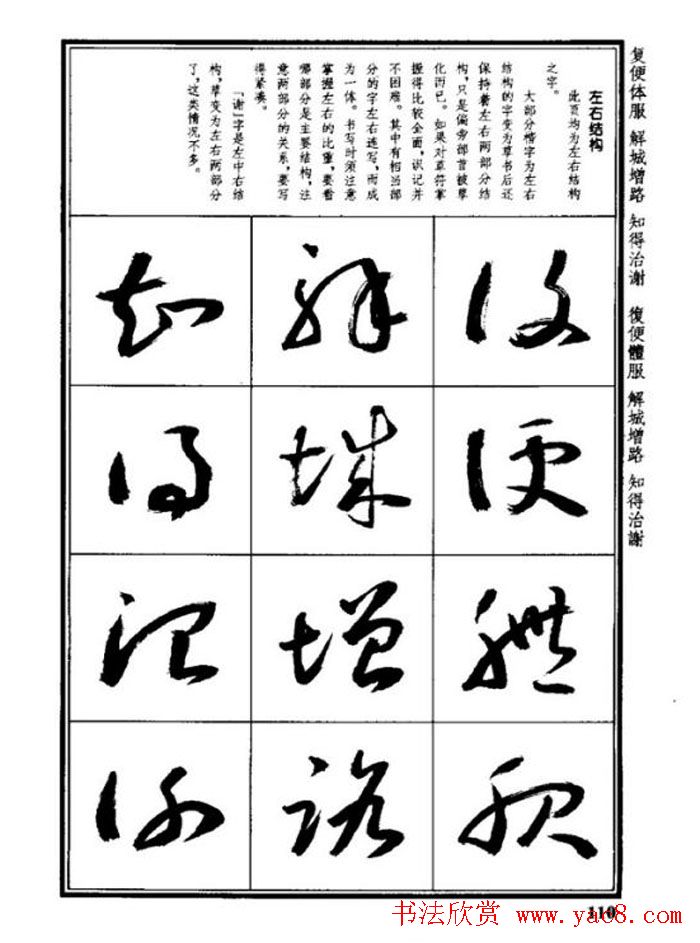 复便体服 解城增路 知得治谢 復便體服 解城增路 知得治謝
左右结构
此页均为左右结构
之字。
大部分楷字为左右
结构的字变为草书后还
保持着左右两部分结
构，只是偏旁部首被草
化而已。如果对草符掌
握得比较全面，识记并
不困难。其中有相当部
分的字左右连写，而成
为一体。书写时须注意
掌握左右的比重，要看
哪部分是主要结构，注
意两部分的关系，要写
得紧凑。
「谢」字是左中右结
构，草变为左右两部分
了，这类情况不多。
復
便
體
服
解
城
增
路
知
得
治
謝
110
书法欣赏 www.yac8.com